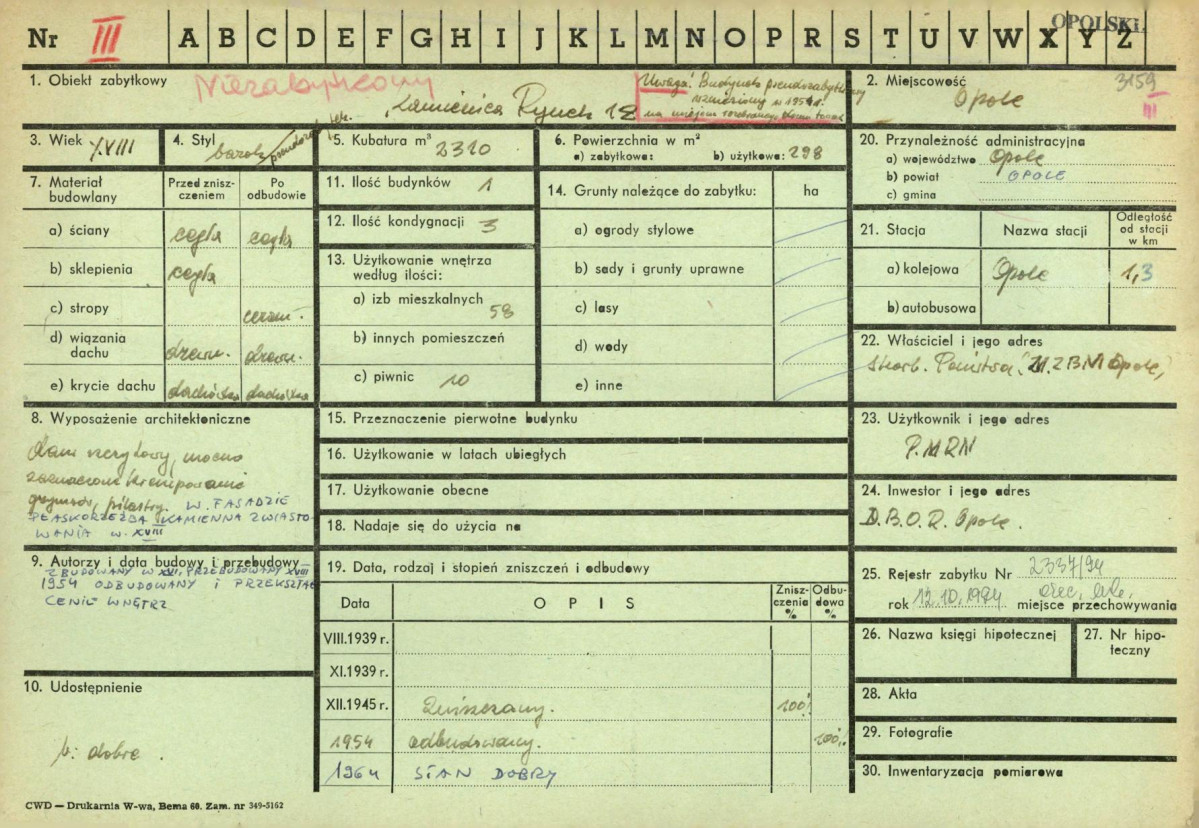 OPOLSKI.
Nr III A B C D E F G H I J K L M N O P R S T U V W X Y Z
1. Obiekt zabytkowy
Niezabytkowy
Kamienica Rynek 12
Uwaga! Budynek pseudozabytkowy
wzniesiony w 1954 r.
na miejscu
2. Miejscowość
Opole
3159
III
3. Wiek XVIII
4. Styl barok
5. Kubatura m³ 2310
6. Powierzchnia w m²
a) zabytkowa: b) użytkowa: 298
7. Materiał budowlany
Przed zniszczeniem
Po odbudowie
a) ściany cegła cegła
b) sklepienia cegła
c) stropy ceram.
d) wiązania dachu drewn. drewn.
e) krycie dachu dachówka dachówka
8. Wyposażenie architektoniczne
dom szczytowy, mocno
zaznaczone
gzymsów, pilastry. W FASADZIE
PŁASKORZEŹBA KAMIENNA ZWIASTO-
WANIA W. XVIII
9. Autorzy i data budowy i przebudowy
ZBUDOWANY W XVI, PRZEBUDOWANY XVIII
1954 ODBUDOWANY I PRZEKSZTAŁ
CENIE WNĘTRZ
10. Udostępnienie
b. dobre.
11. Ilość budynków 1
12. Ilość kondygnacji 3
13. Użytkowanie wnętrza
według ilości:
a) izb mieszkalnych 58
b) innych pomieszczeń
c) piwnic 10
14. Grunty należące do zabytku: ha
a) ogrody stylowe
b) sady i grunty uprawne
c) lasy
d) wody
e) inne
15. Przeznaczenie pierwotne budynku
16. Użytkowanie w latach ubiegłych
17. Użytkowanie obecne
18. Nadaje się do użycia na
19. Data, rodzaj i stopień zniszczeń i odbudowy
Data OPIS Zniszczenia % Odbudowa %
VIII.1939 r.
XI.1939 r.
XII.1945 r. Zniszczony. 100%
1954 odbudowany. 100%
1964 STAN DOBRY
20. Przynależność administracyjna
a) województwo Opole
b) powiat OPOLE
c) gmina
21. Stacja Nazwa stacji Odległość od stacji w km
a) kolejowa Opole 1,3
b) autobusowa
22. Właściciel i jego adres
Skarb. Państwa MZBM Opole,
23. Użytkownik i jego adres
P.MRN
24. Inwestor i jego adres
D.B.O.R. Opole.
25. Rejestr zabytku Nr 2337/94
rok 12.10.1994 miejsce przechowywania
26. Nazwa księgi hipotecznej
27. Nr hipoteczny
28. Akta
29. Fotografie
30. Inwentaryzacja pomiarowa
CWD — Drukarnia W-wa, Bema 60. Zam. nr 349-5162